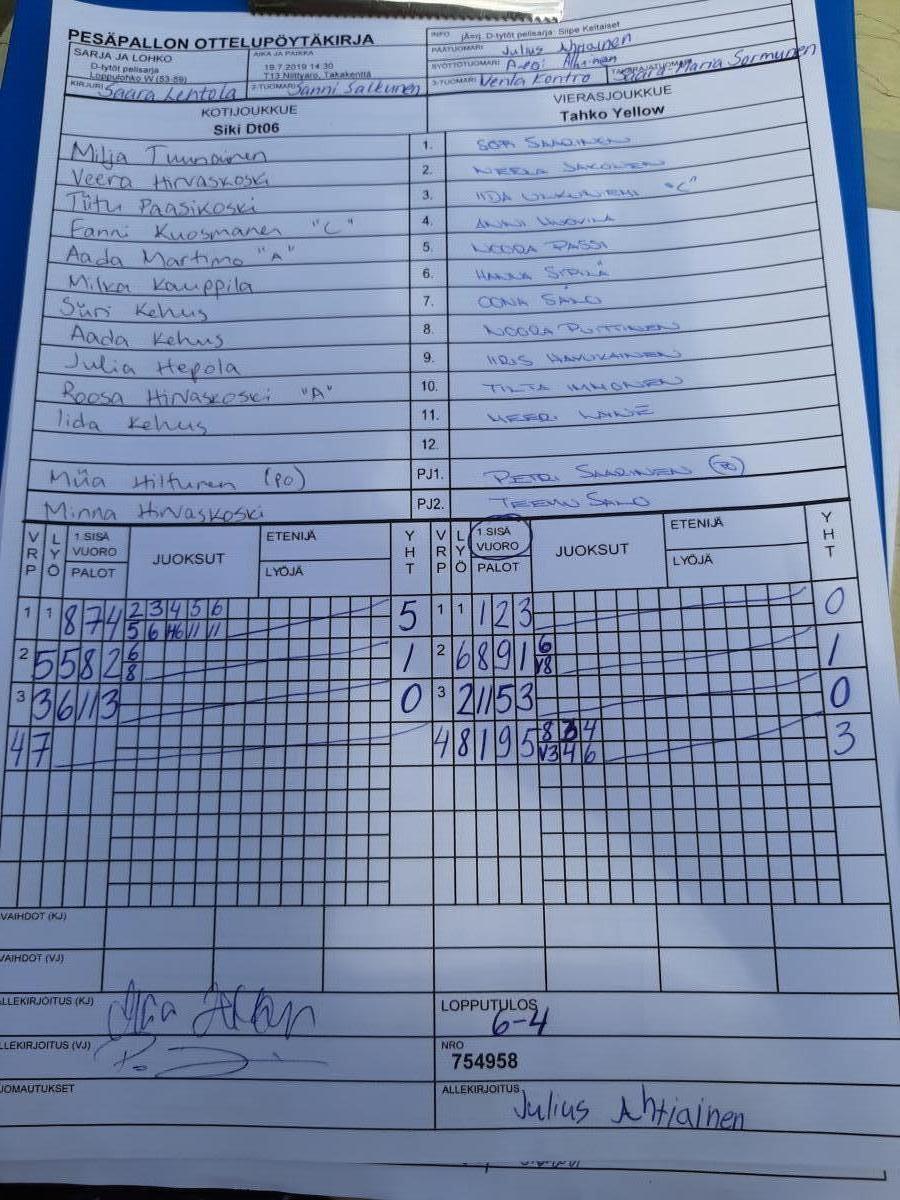 PESÄPALLON OTTELUPÖYTÄKIRJA
INFO jÄ=rj. D-tytöt pelisarja: Siipe Keltaiset
SARJA JA LOHKO
D-tytöt pelisarja
Loppulohko W (53-59)
AIKA JA PAIKKA
19.7.2019 14:30
T13 Niittyaro, Takakenttä
PÄÄTUOMARI Julius Ahtiainen
SYÖTTÖTUOMARI
KIRJURI Saara Lehtola
2-TUOMARI Sanni Salkunen
3-TUOMARI Venla Kontro
TAKARAJATUOMARI Saara-Maria Sormunen
KOTIJOUKKUE
Siki Dt06
VIERASJOUKKUE
Tahko Yellow
Milja Tuunainen 1. SOFI SAARINEN
Veera Hirvaskoski 2. NEELA SAKONEN
Tiitu Paasikoski 3. IIDA "C"
Fanni Kuosmanen "C" 4. ANNI
Aada Martimo "A" 5. NOORA PASSI
Milka Kauppila 6. HANNA SIPILÄ
Siiri Kehus 7. OONA SALO
Aada Kehus 8. NOORA PUITTINEN
Julia Hepola 9. IIRIS HAVUKAINEN
Roosa Hirvaskoski "A" 10. TILTA IMMONEN
Iida Kehus 11. MEERI LAINE
12.
Miia Hiltunen (PO) PJ1. PETRI SAARINEN (PO)
Minna Hirvaskoski PJ2. TEEMU SALO
VRP LYÖ 1.SISÄ VUORO PALOT JUOKSUT ETENIJÄ LYÖJÄ YHT VRP LYÖ 1.SISÄ VUORO PALOT JUOKSUT ETENIJÄ LYÖJÄ YHT
1 1 8 7 4 2 3 4 5 6 5 1 1 1 2 3 0
5 6 11 11
2 5 5 8 2 6 1 2 6 8 9 1 6 1
8 V8
3 3 6 11 3 0 3 2 11 5 3 0
4 7 4 8 1 9 5 8 3 4 3
V3 4 6
VAIHDOT (KJ)
VAIHDOT (VJ)
ALLEKIRJOITUS (KJ)
LOPPUTULOS
6-4
LLEKIRJOITUS (VJ)
NRO
754958
UOMAUTUKSET
ALLEKIRJOITUS
Julius Ahtiainen